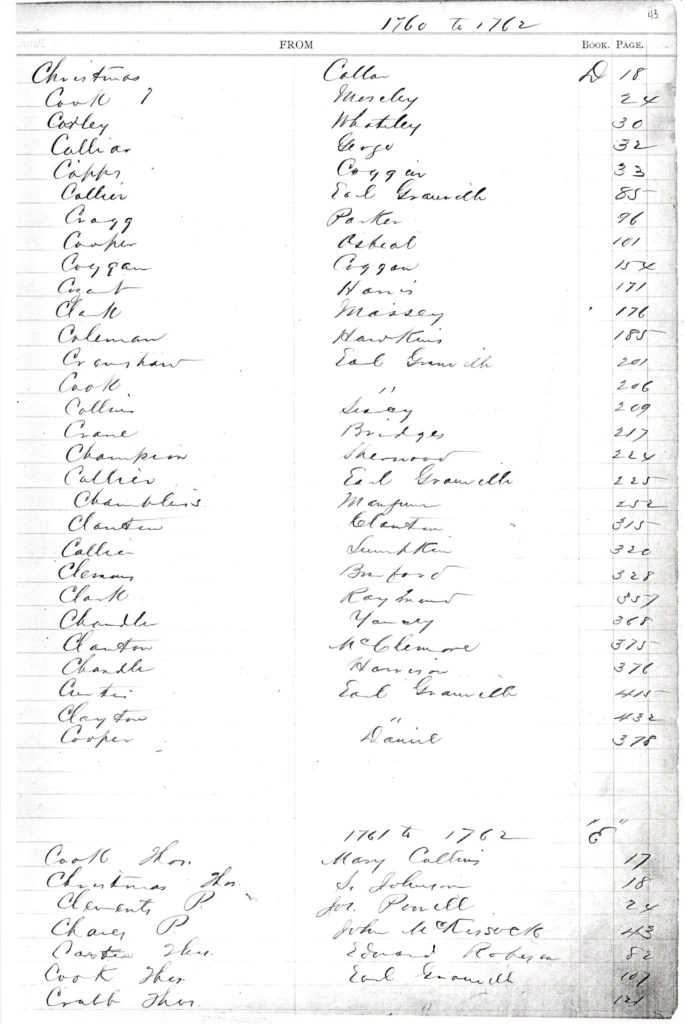 43
1760 to 1762
FROM BOOK. PAGE.
Christmas Collar D 18
Cook Moseley 24
Whateley 30
32
Capps Coggin 33
Collier Earl Granville 85
Cragg Parker 96
Cooper 101
Coggan Coggan 154
Harris 171
Clark Massey 176
Coleman Hawkins 185
Crenshaw Earl Granville 201
Cook " 206
Collins 209
Crane Bridges 217
Champion Sherwood 224
Collier Earl Granville 225
Chambliss Mangum 252
Clanton Clanton 315
Collier Lumpkin 320
Clemons Buford 328
Clark Raymond 357
Chandler Yancey 368
Clanton McClemore 375
Chandler Harrison 376
Curtis Earl Granville 415
Clayton " 432
Cooper Daniel 378
1761 to 1762 "E"
Cook Thos. Mary Collins 17
Christmas Thos. S. Johnson 18
Clements P. Jos. Powell 24
P. John McKissock 43
Thos. Edward Roberson 82
Cook Thos Earl Granville 107
Crabb Thos. " 121